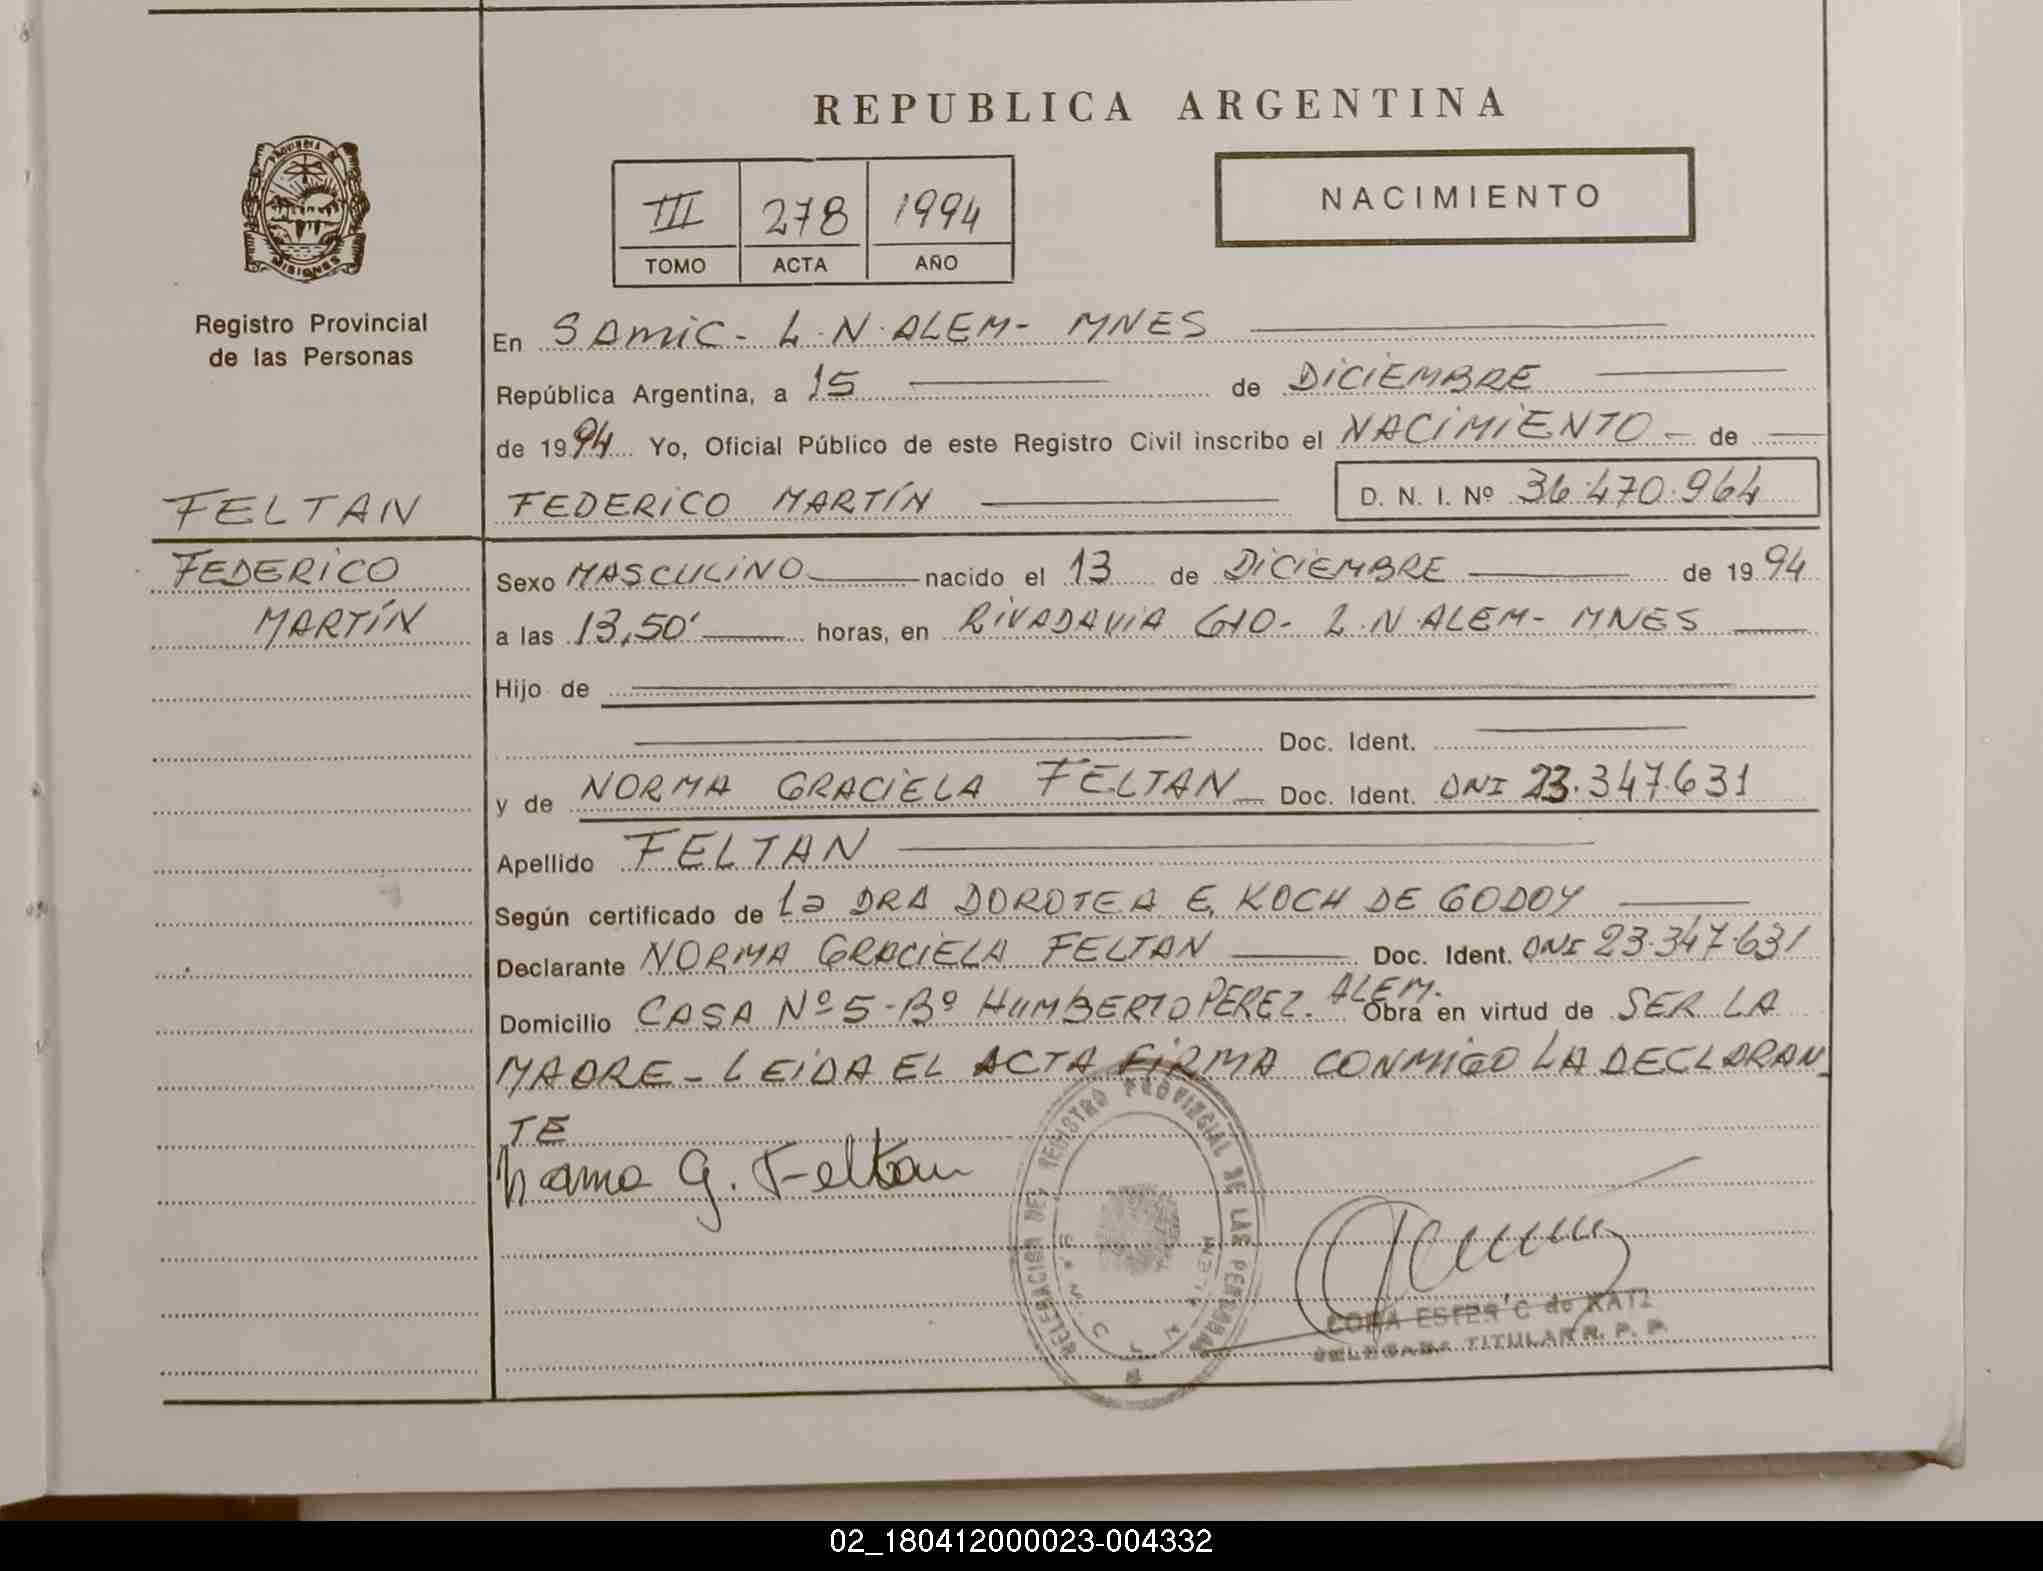 REPUBLICA ARGENTINA
PROVINCIA DE
MISIONES
III 278 1994
TOMO ACTA AÑO
NACIMIENTO
Registro Provincial
de las Personas
En SAMIC - L.N. ALEM - MNES
República Argentina, a 15 de DICIEMBRE
de 1994 Yo, Oficial Público de este Registro Civil inscribo el NACIMIENTO de
FELTAN
FEDERICO MARTÍN D. N. I. Nº 36.470.964
FEDERICO
MARTÍN
Sexo MASCULINO nacido el 13 de DICIEMBRE de 1994
a las 13,50' horas, en RIVADAVIA 610 - L.N. ALEM - MNES
Hijo de
Doc. Ident.
y de NORMA GRACIELA FELTAN Doc. Ident. DNI 23.347.631
Apellido FELTAN
Según certificado de La DRA DOROTEA E. KOCH DE GODOY
Declarante NORMA GRACIELA FELTAN Doc. Ident. DNI 23.347.631
Domicilio CASA Nº 5 - Bº HUMBERTO PEREZ. ALEM. Obra en virtud de SER LA
MADRE - LEIDA EL ACTA FIRMA CONMIGO LA DECLARAN
TE
Norma G. Feltan
REGISTRO PROVINCIAL DE LAS PERSONAS
CORA ESTER C de KATZ
DELEGADA TITULAR R. P. P.
02_180412000023-004332